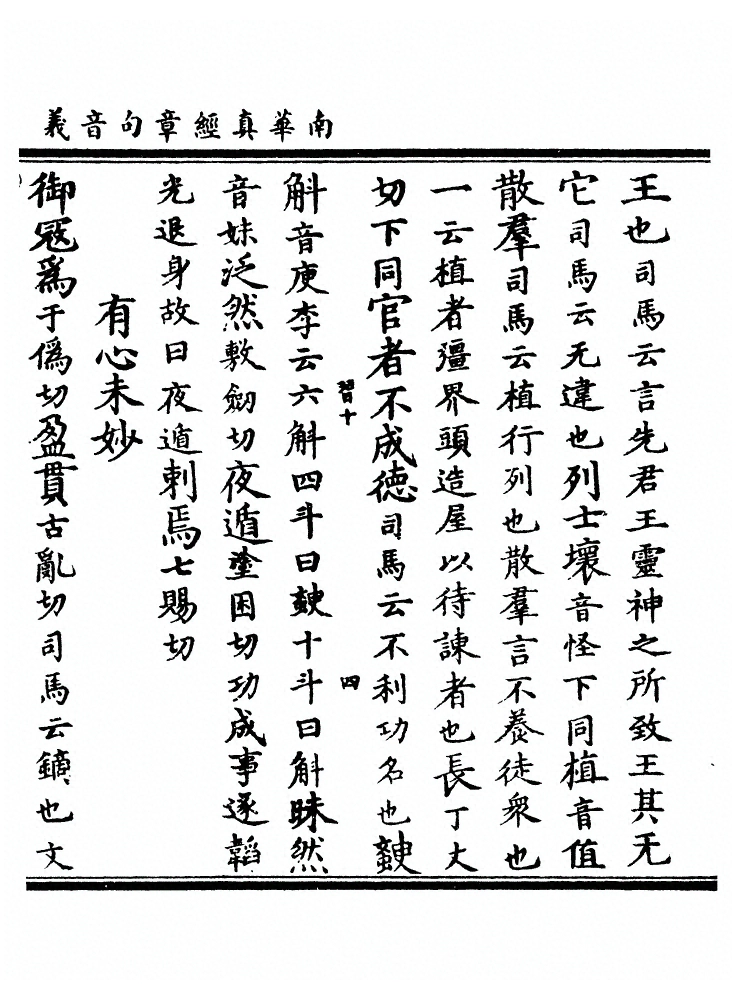 南華真經章句音義
王也司馬云言先君王靈神之所致王其无
它司馬云无違也列士壞音怪下同植音值
散羣司馬云植行列也散羣言不養徒衆也
一云植者彊界頭造屋以待諫者也長丁丈
切下同官者不成德司馬云不利功名也䵂
習十
四
斛音庾李云六斛四斗曰䵂十斗曰斛昧然
音妹泛然敷劒切夜遁塗困切功成事遂韜
光退身故曰夜遁刺焉七賜切
有心未妙
御寇爲于僞切盈貫古亂切司馬云鏑也文